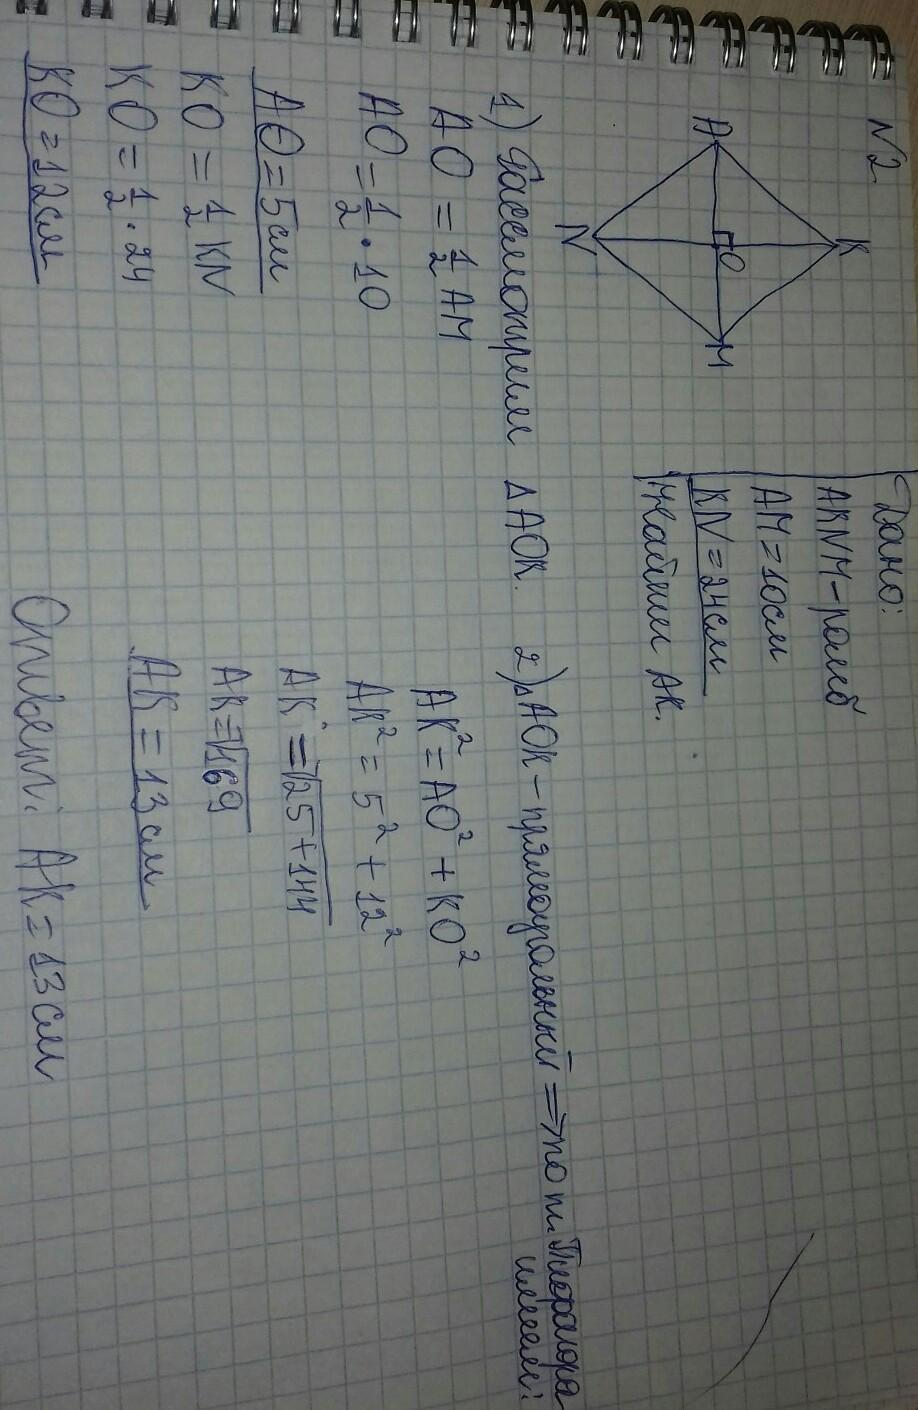 N2
A
K
O
M
N
Дано:
AKNM-ромб
AM=10см
KN=24см
Найти AK.
1) Рассмотрим △AOK.
AO = 1/2 AM
AO = 1/2 · 10
AO=5см
KO = 1/2 KN
KO = 1/2 · 24
KO=12см
2)△AOK-прямоугольный => по т. Пифагора
имеем:
AK²=AO²+KO²
AK²=5²+12²
AK=√25+144
AK=√169
AK=13см
Ответ: AK=13см